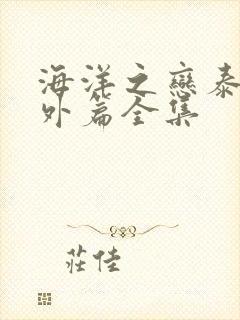 海洋之戀泰
外篇全集
莊佳